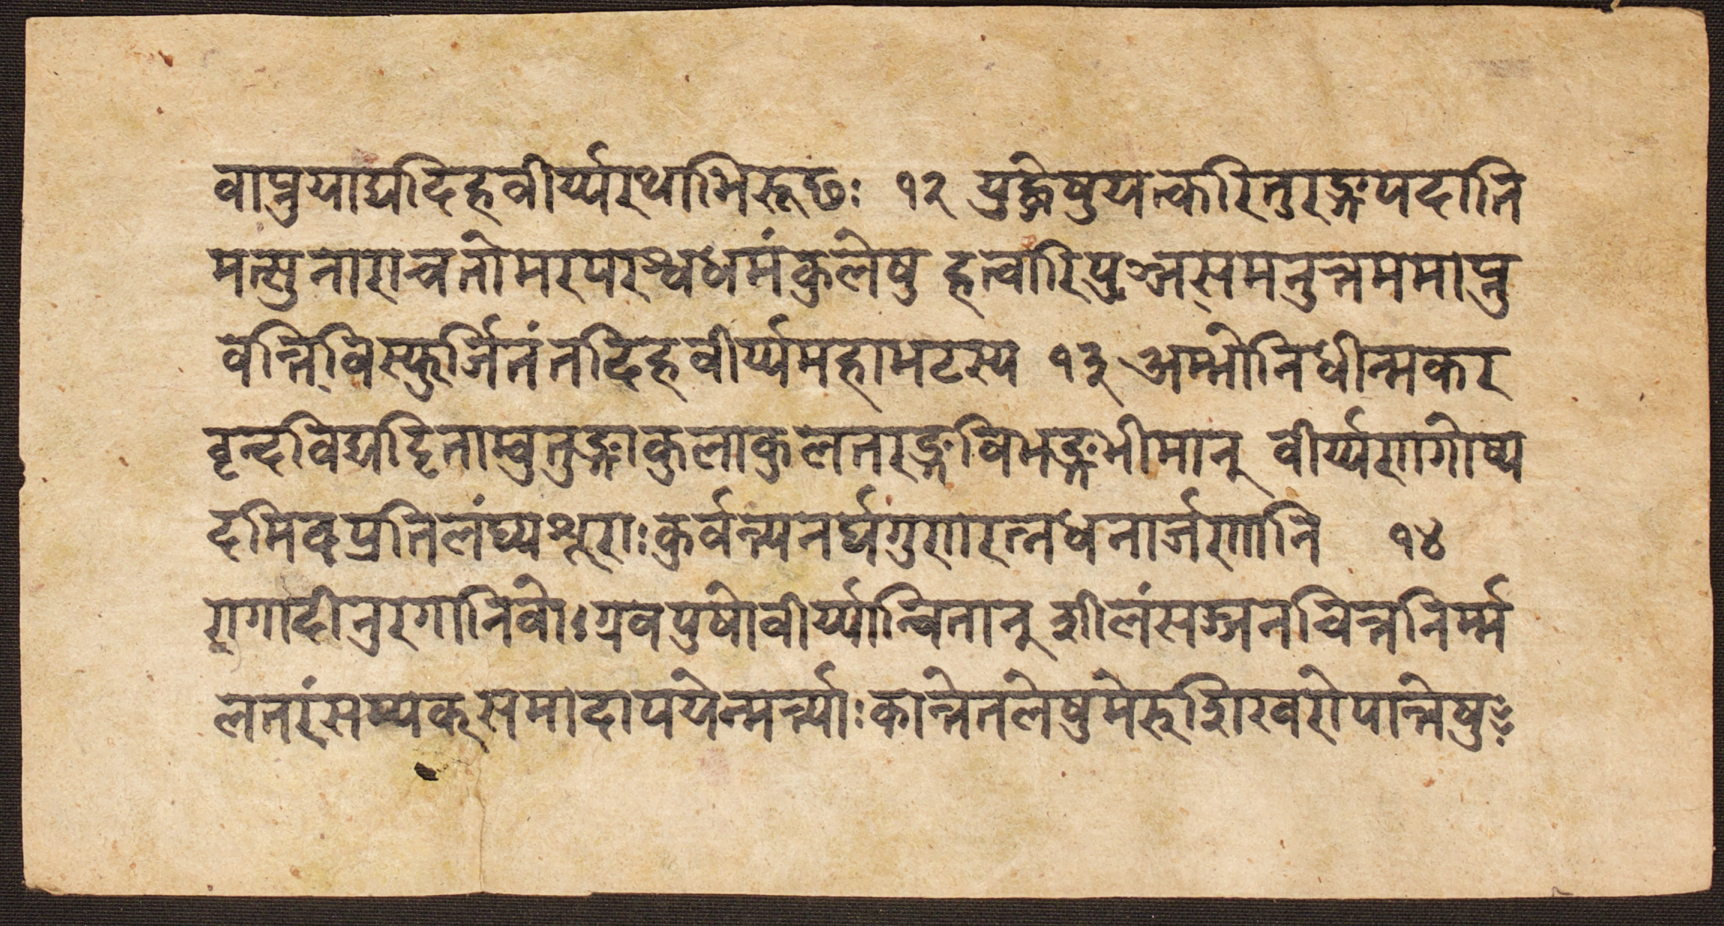 वाप्नुयाद्यदिहवीर्य्यरथाभिरूढः १२ युद्धेषुयत्करितुरङ्गपदाति
मत्सुनाराचतोमरपरश्वधसंकुलेषु हत्वारिपुञ्जसमनुत्तममाप्नु
वन्तिविस्फुर्जितंतदिहवीर्य्यमहाभटस्य १३ अम्भोनिधीन्मकर
वृन्दविघट्टिताम्बुतुङ्गाकुलाकुलतरङ्गविभङ्गभीमान् वीर्य्यणगोष्प
दमिवप्रतिलंघ्यशूराःकुर्वन्त्यनर्घगुणरत्नधनार्जणानि १४
रागादीनुरगानिवोग्रवपुषोवीर्य्यान्वितान् शीलंसज्जनचित्तनिर्म्म
लतरंसम्यक्समादापयेन्मर्त्त्याःकान्तेतलेषुमेरुशिखरोपान्तेषु